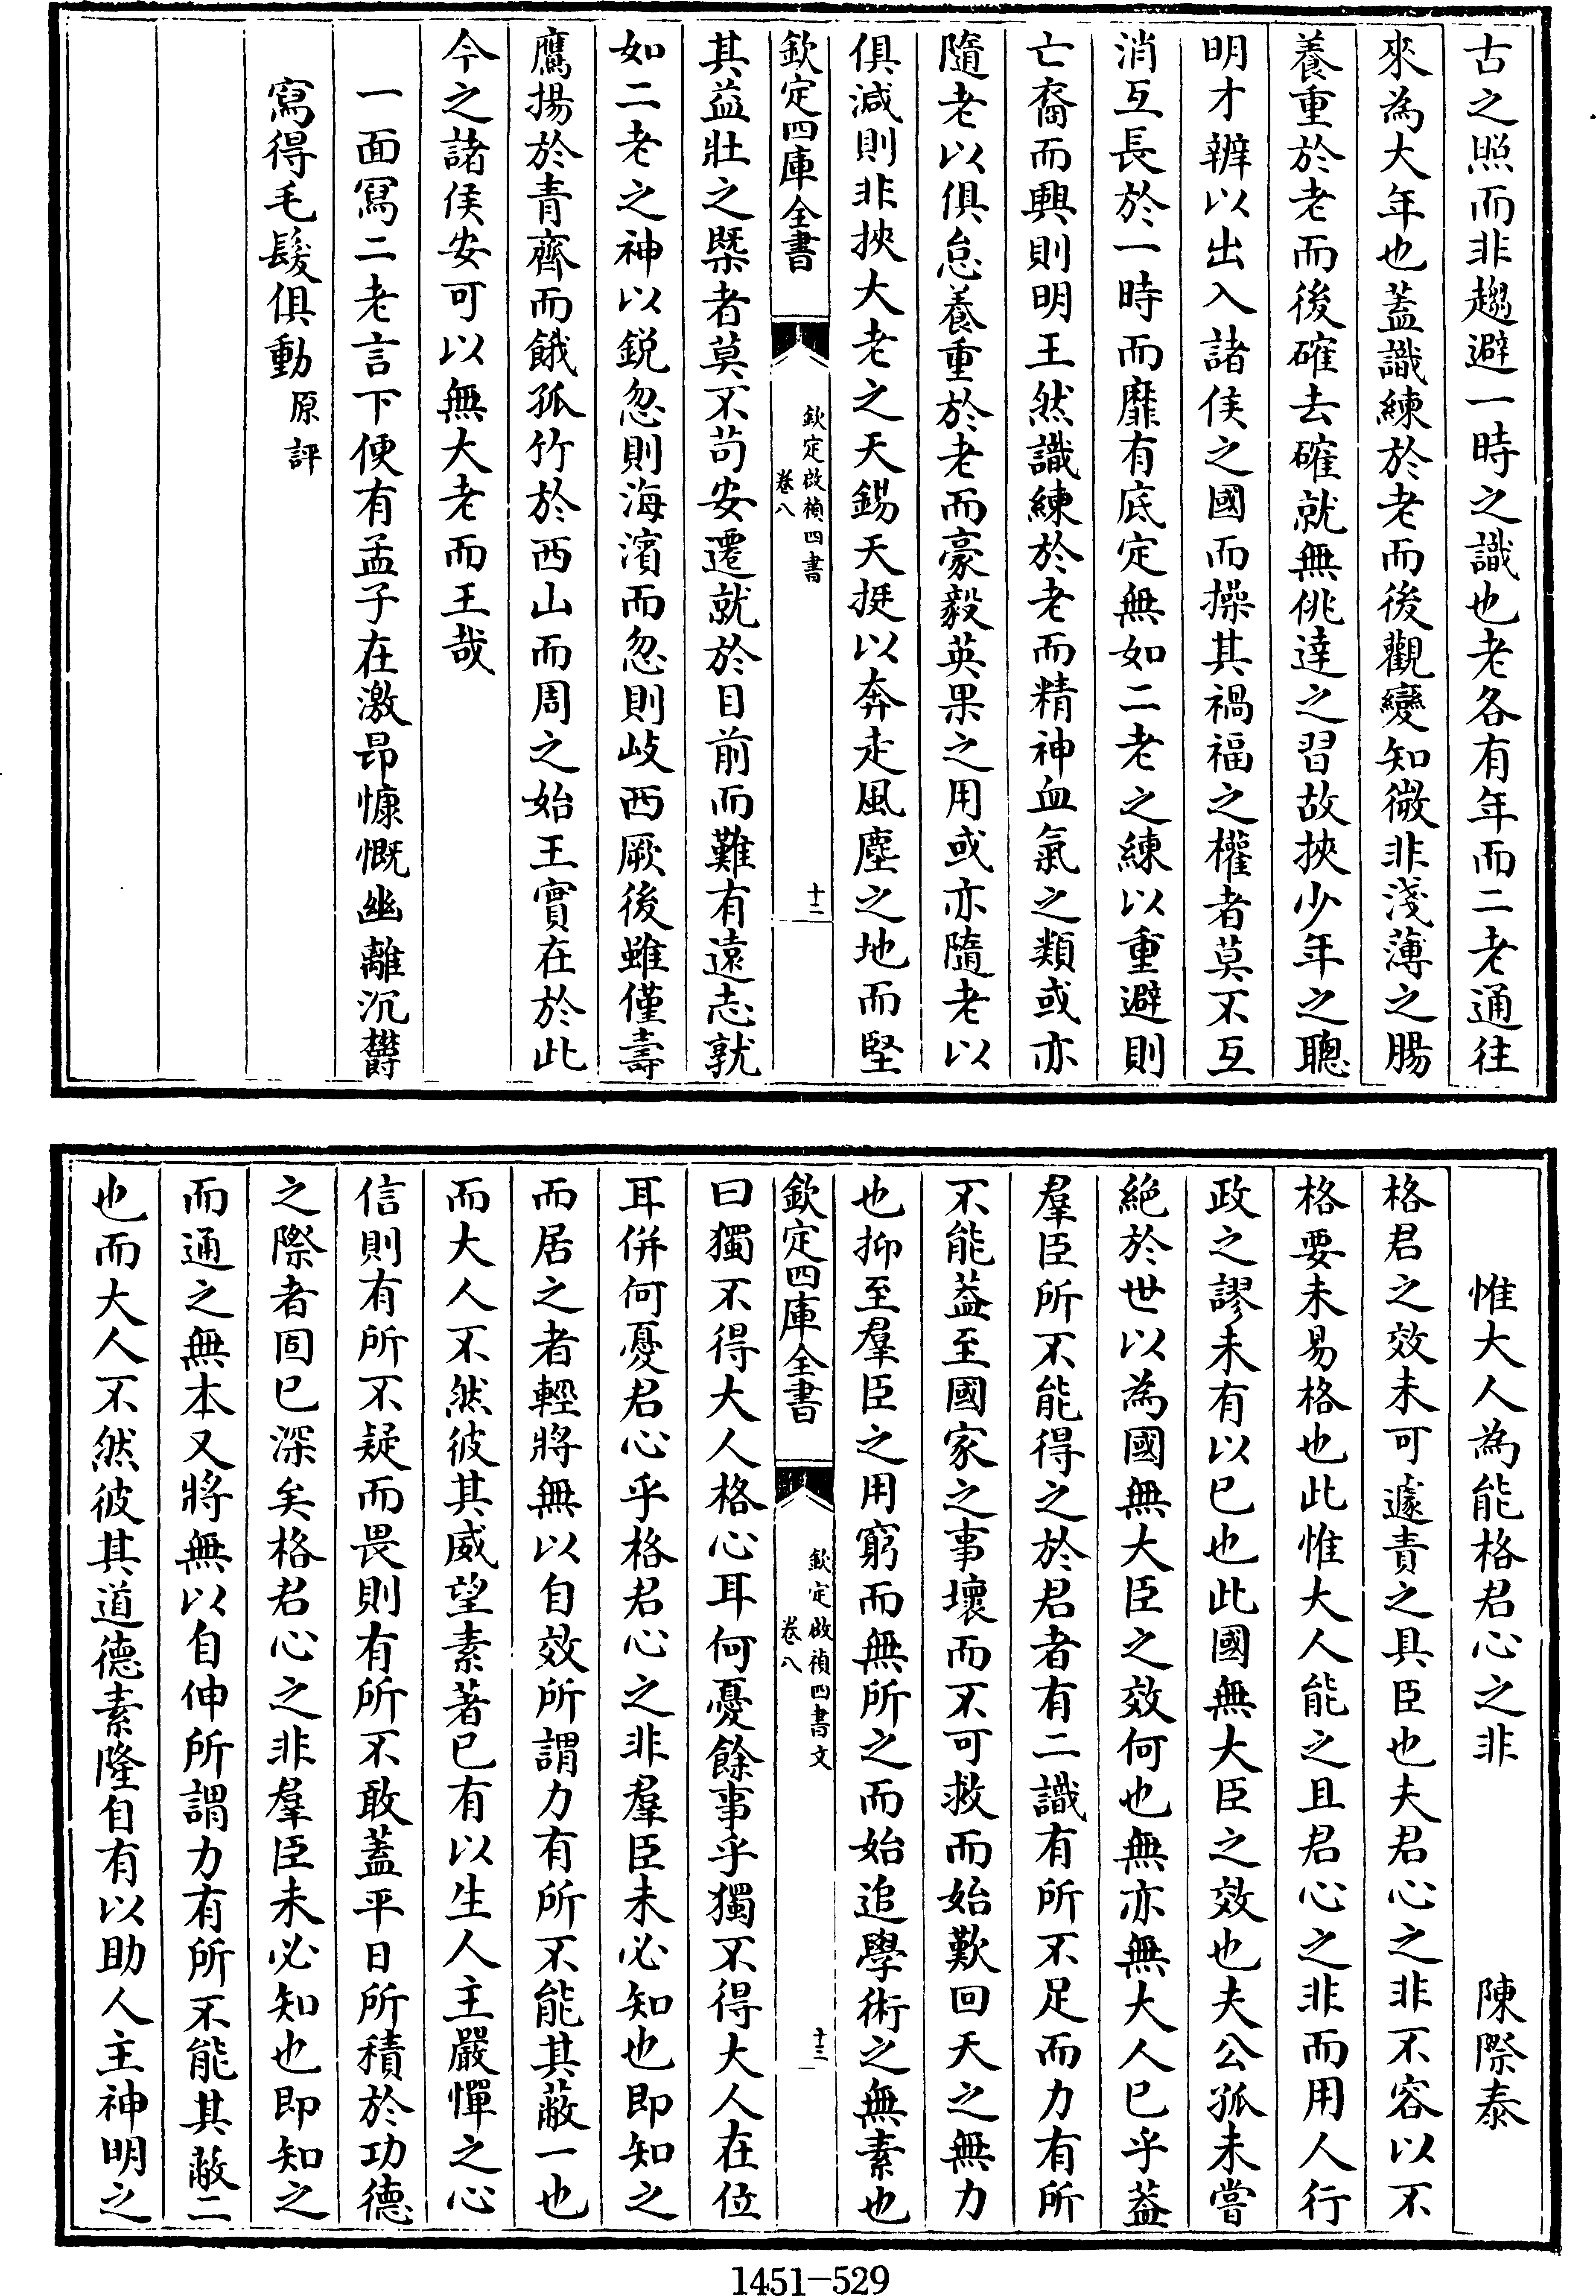 古之照而非趨避一時之識也老各有年而二老通往
來為大年也蓋識練於老而後觀變知微非淺薄之腸
養重於老而後確去確就無佻達之習故挾少年之聰
明才辨以出入諸侯之國而操其禍福之權者莫不互
消互長於一時而靡有底定無如二老之練以重避則
亡裔而興則明王然識練於老而精神血氣之類或亦
隨老以俱怠養重於老而豪毅英果之用或亦隨老以
俱減則非挾大老之天錫天挺以奔走風塵之地而堅
欽定四庫全書
欽定啟禎四書
卷八
十二
其益壯之槩者莫不苟安遷就於目前而難有遠志孰
如二老之神以銳忽則海濱而忽則岐西厥後雖僅壽
鷹揚於青齊而餓孤竹於西山而周之始王實在於此
今之諸侯安可以無大老而王哉
一面寫二老言下便有孟子在激昂慷慨幽離沉欝
寫得毛髮俱動原評
惟大人為能格君心之非 陳際泰
格君之效未可遽責之具臣也夫君心之非不容以不
格要未易格也此惟大人能之且君心之非而用人行
政之謬未有以已也此國無大臣之效也夫公孤未嘗
絕於世以為國無大臣之效何也無亦無大人已乎葢
羣臣所不能得之於君者有二識有所不足而力有所
不能葢至國家之事壞而不可救而始歎回天之無力
也抑至羣臣之用窮而無所之而始追學術之無素也
欽定四庫全書
欽定啟禎四書文
卷八
十三
曰獨不得大人格心耳何憂餘事乎獨不得大人在位
耳併何憂君心乎格君心之非羣臣未必知也即知之
而居之者輕將無以自效所謂力有所不能其蔽一也
而大人不然彼其威望素著已有以生人主嚴憚之心
信則有所不疑而畏則有所不敢蓋平日所積於功德
之際者固已深矣格君心之非羣臣未必知也即知之
而通之無本又將無以自伸所謂力有所不能其蔽二
也而大人不然彼其道德素隆自有以助人主神明之
1451-529